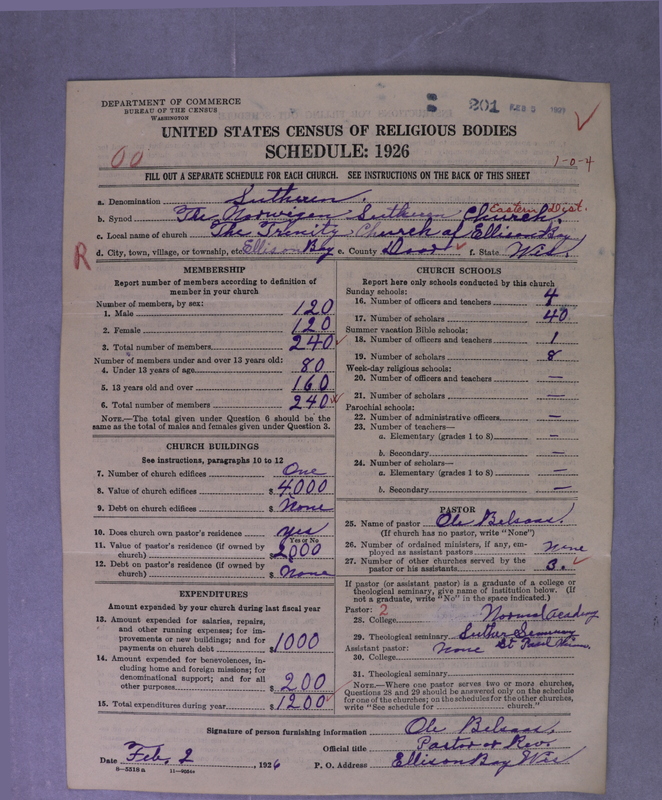 DEPARTMENT OF COMMERCE
BUREAU OF THE CENSUS
WASHINGTON
201
UNITED STATES CENSUS OF RELIGIOUS BODIES
SCHEDULE: 1926
00
1-0-4
FILL OUT A SEPARATE SCHEDULE FOR EACH CHURCH. SEE INSTRUCTIONS ON THE BACK OF THIS SHEET
a. Denomination Lutheran.
b. Synod The Norwigen Lutheren Church. Eastern Dist.
c. Local name of church The Trinity Church of Ellison Bay
R
d. City, town, village, or township, etc. Ellison Bay e. County Door f. State Wis.
MEMBERSHIP
Report number of members according to definition of
member in your church
Number of members, by sex:
1. Male 120
2. Female 120
3. Total number of members 240
Number of members under and over 13 years old:
4. Under 13 years of age 80
5. 13 years old and over 160
6. Total number of members 240
NOTE.—The total given under Question 6 should be the
same as the total of males and females given under Question 3.
CHURCH BUILDINGS
See instructions, paragraphs 10 to 12
7. Number of church edifices One
8. Value of church edifices $ 4000
9. Debt on church edifices $ None
10. Does church own pastor's residence? yes
Yes or No
11. Value of pastor's residence (if owned by
church) $ 2000
12. Debt on pastor's residence (if owned by
church) $ None
EXPENDITURES
Amount expended by your church during last fiscal year
13. Amount expended for salaries, repairs,
and other running expenses; for im-
provements or new buildings; and for
payments on church debt $ 1000
14. Amount expended for benevolences, in-
cluding home and foreign missions; for
denominational support; and for all
other purposes $ 200
15. Total expenditures during year $ 1200
CHURCH SCHOOLS
Report here only schools conducted by this church
Sunday schools:
16. Number of officers and teachers 4
17. Number of scholars 40
Summer vacation Bible schools:
18. Number of officers and teachers 1
19. Number of scholars 8
Week-day religious schools:
20. Number of officers and teachers —
21. Number of scholars —
Parochial schools:
22. Number of administrative officers —
23. Number of teachers—
a. Elementary (grades 1 to 8) —
b. Secondary —
24. Number of scholars—
a. Elementary (grades 1 to 8) —
b. Secondary —
PASTOR
25. Name of pastor Ole
(If church has no pastor, write "None")
26. Number of ordained ministers, if any, em-
ployed as assistant pastors None
27. Number of other churches served by the
pastor or his assistants 3.
If pastor (or assistant pastor) is a graduate of a college or
theological seminary, give name of institution below. (If
not a graduate, write "No" in the space indicated.)
Pastor: 2
28. College Normal Academy
29. Theological seminary Luther Seminary
St. Paul Minn.
Assistant pastor: None
30. College
31. Theological seminary
NOTE.—Where one pastor serves two or more churches,
Questions 28 and 29 should be answered only on the schedule
for one of the churches; on the schedules for the other churches,
write "See schedule for church."
Signature of person furnishing information Ole
Official title Pastor or Rev.
Date Feb, 2, 1926 P. O. Address Ellison Bay Wis
8-5518a